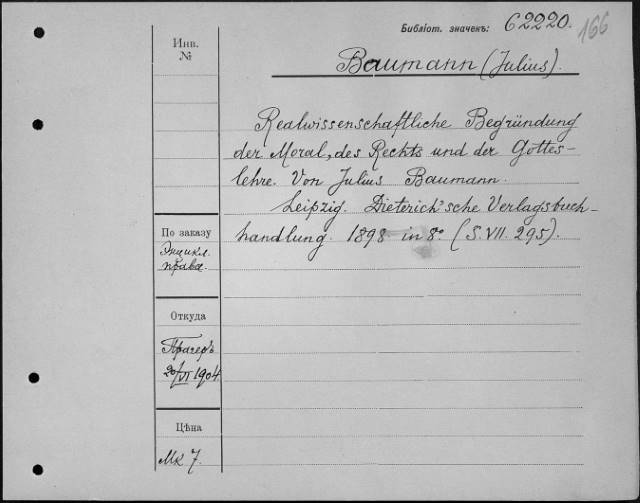 Библіот. значекъ: C 2220.
166
Инв.
№
Baumann (Julius).
Realwissenschaftliche Begründung
der Moral, des Rechts und der Gottes-
lehre. Von Julius Baumann.
Leipzig. Dieterich'sche Verlagsbuch-
handlung. 1898 in 8º (S. VII. 295).
По заказу
Энцикл.
права.
Откуда
Прагеръ
20/VI 1904
Цѣна
Mk 7.